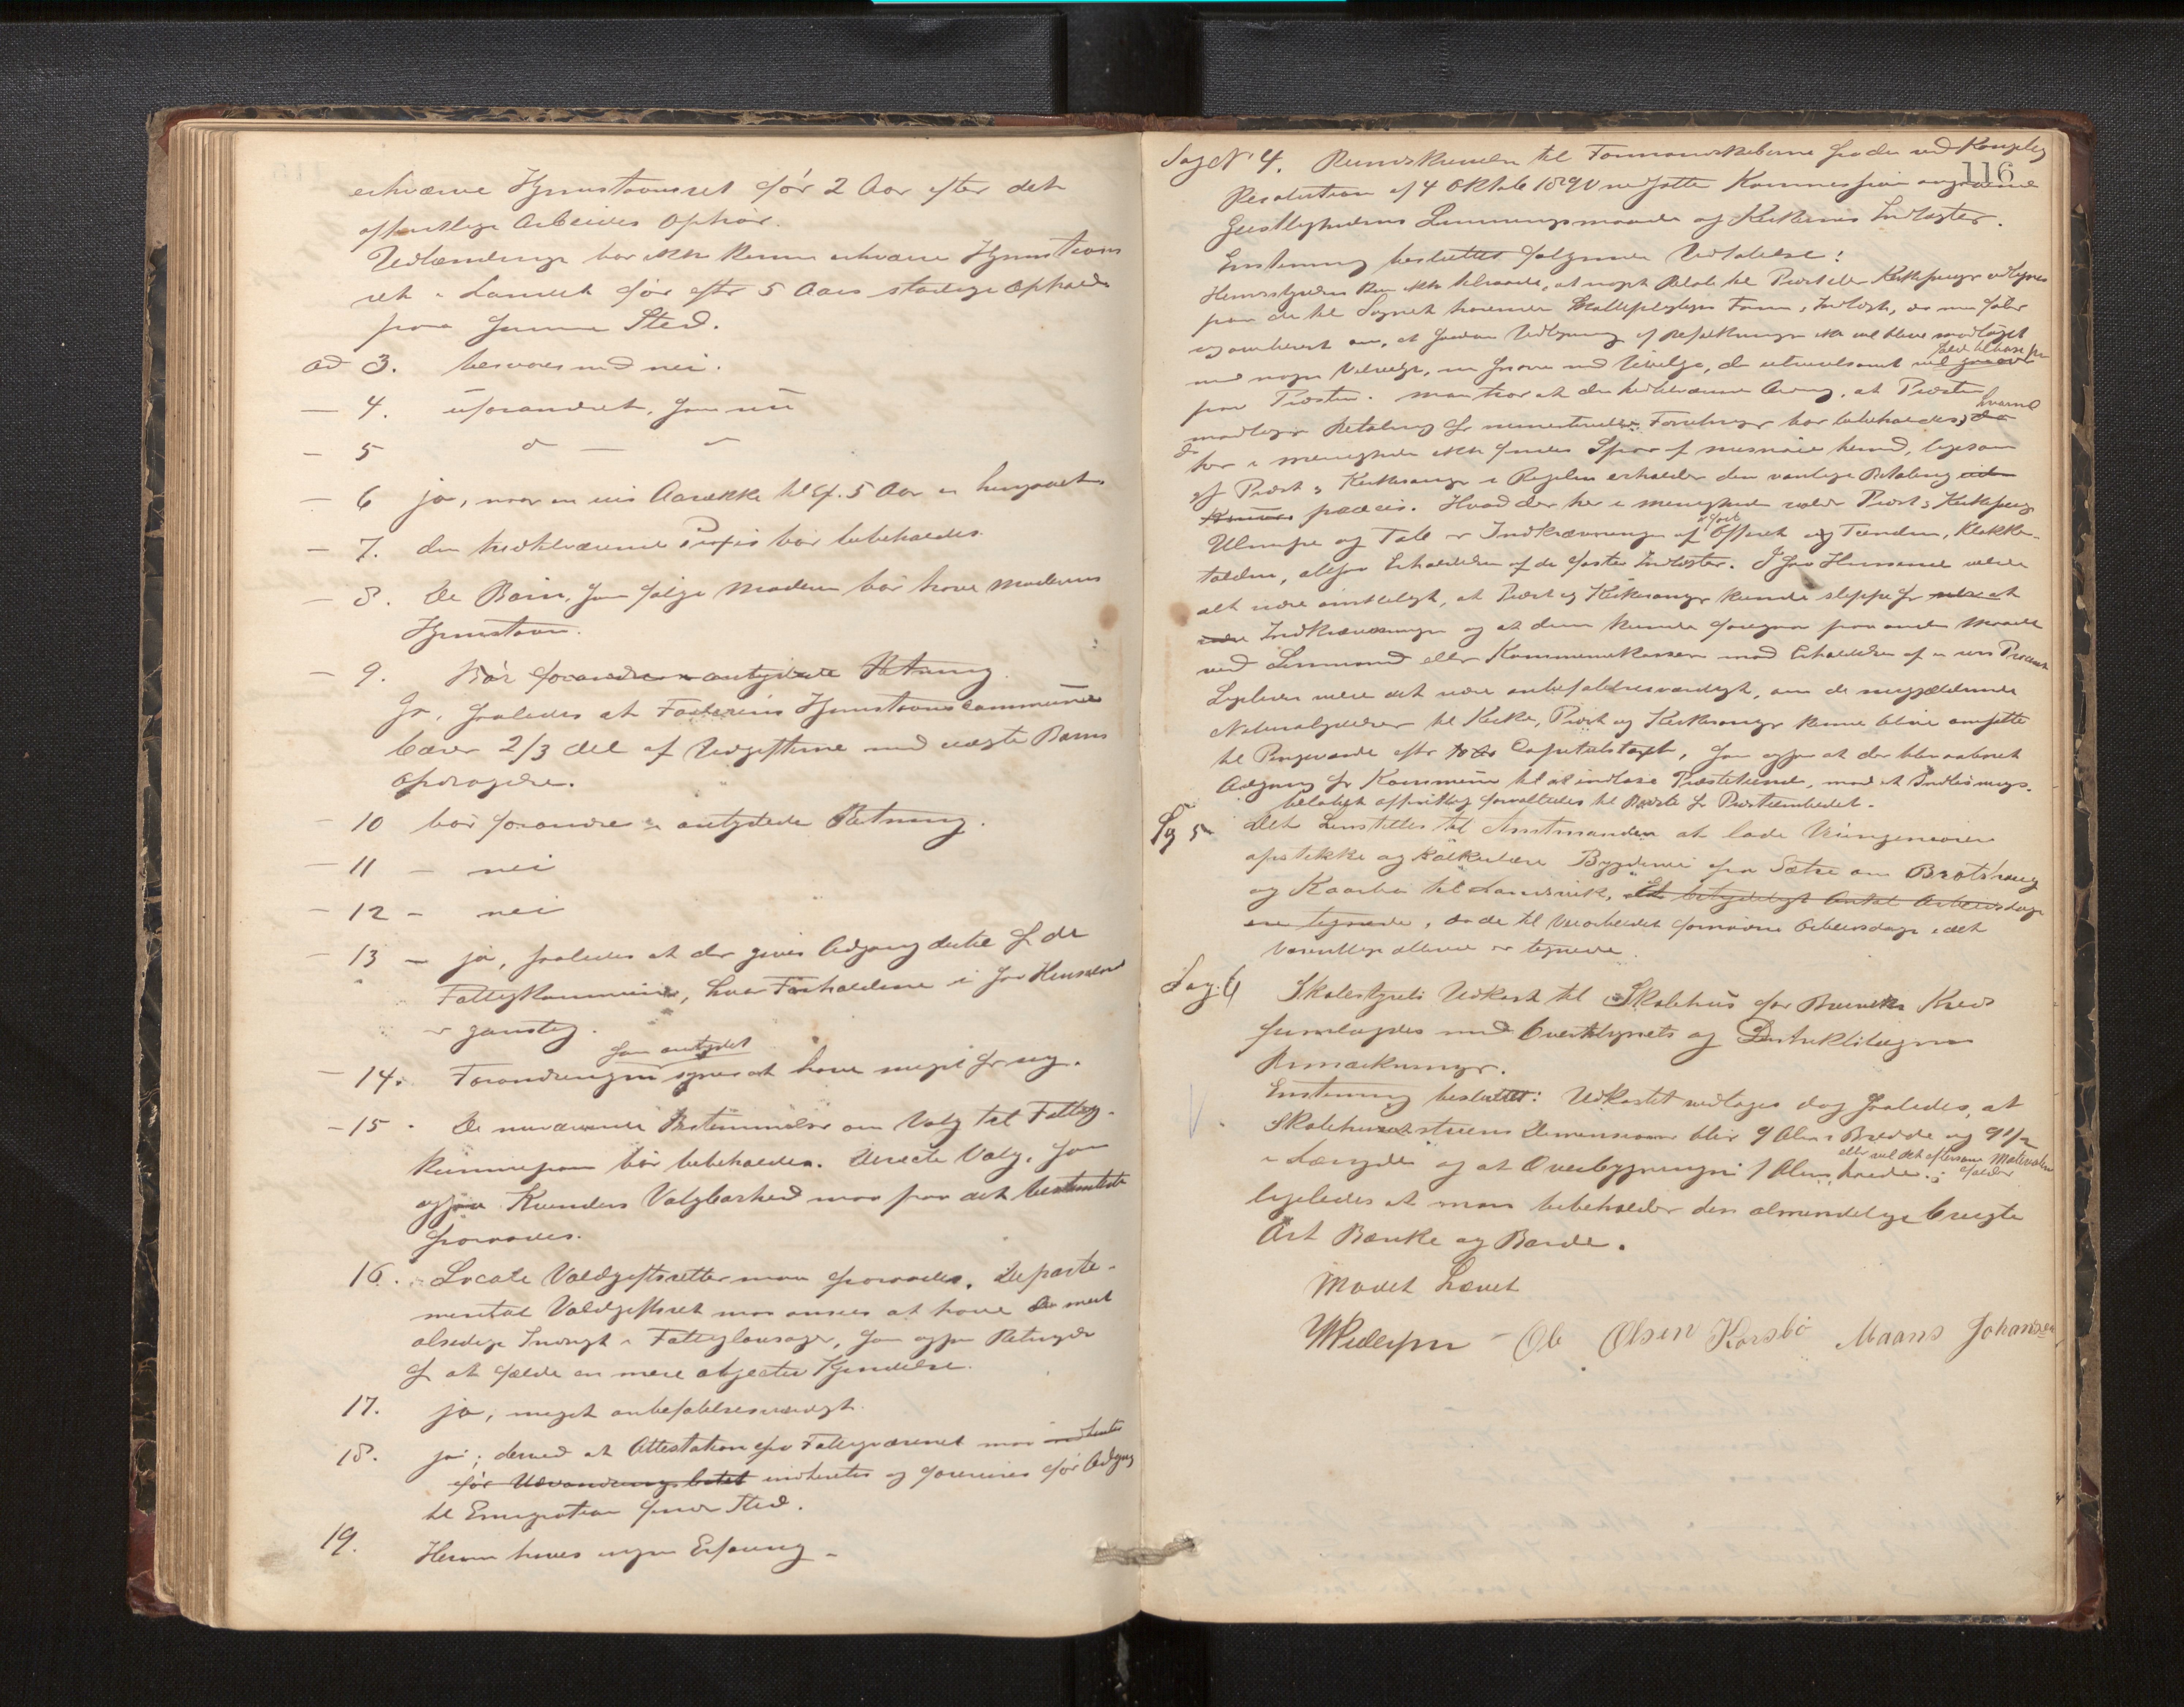 erhverve Hjemstavnsret før 2 Aar efter det
offentlige Arbeides Ophør.
Udlændinge bør ikke kunne erhverve Hjemstavns
ret i Landet før efter 5 Aars stadige Ophold
paa samme Sted.
ad 3. besvares med nei.
— 4. uforandret, som nu
— 5 d — o
— 6 ja, naar en vis Aarrække til Ex. 5 Aar er hengaaet
— 7. den hidtilværende Praxis bør bibeholdes.
— 8. De Børn, som følge Moderen bør have Moderens
Hjemstavn.
— 9. Bør forandres i antydede Retning.
Ja, saaledes at Faderens Hjemstavnscommune
bærer 2/3 del af Udgifterne med uægte Børns
Opdragelse.
— 10 bør forandres i antydede Retning.
— 11 — nei
— 12 — nei
— 13 — ja, saaledes at der gives Adgang dertil for de
Fattigkommuner, hvor Forholdene i saa Henseende
er gunstig.
som antydet
— 14. Forandringen synes at have meget for sig.
— 15 . De nuværende Bestemmelser om Valg til Fattig-
kommissionen bør bibeholdes. Directe Valg, som
ogsaa Kvinders Valgbarhed maa paa det bestemteste
fraraades.
16. Locale Voldgiftsretter maa fraraades. Departe-
mental Voldgiftsret maa ansees at have den mest
alsidige Indsigt i Fattiglovsager, som ogsaa Betingelse
for at fælde en mere objectiv Kjendelse.
17. ja, meget anbefalelsesværdigt.
18. ja; derved at Attestation fra Fattigvæsenet maa indhentes
før Udvandringsbilet indhentes og forevises før Adgang
til Emigration finder Sted.
19. Herom haves ingen Erfaring —
116
Sag No 4. Rundskrivelse til Formandskaberne fra den ved Kongelig
Resolution af 4 Oktober 1890 nedsatte Kommission angaaende
Geistlighedens Lønningsmaade og Kirkernes Indtægter.
Enstemmig besluttet følgende Udtalelse:
Herredsstyrelsen kan ikke tilraade, at noget Beløb til Præst eller Kirkesanger udlignes
paa de til Sognet hørende Skattepligtiges Formue og Indtægt, da man føler
sig overbevist om, at saadan Udligning af Befolkningen ikke vil blive modtaget
med nogen Velvilje, men snarere med Uvilje, der utvivlsomt vil
falde tilbage paa
paa Præsten. Man tror at den hidtilværende Orden, at Præsten
modtager Betaling for ministerielle Forretninger bør bibeholdes, da
hvormed
der i Menigheden ikke findes Spor af Misnøie hermed, ligesom
og Præst og Kirkesanger i Regelen erholder den vanlige Betaling uden
præcis. Hvad der her i Menigheden volder Præst og Kirkesanger
Ulempe og Tab er Indkrævningen af Offeret og Tienden, Klokker-
tolden, altsaa Erholdelsen af de faste Indtægter. I saa Henseende vilde
det være ønskeligt, at Præst og Kirkesanger kunde slippe for selv at
Indkrævningen og at denne kunde foregaa paa anden Maade
ved Lensmand eller Kommunekassen mod Erholdelse af en vis Procent
Ligeledes vilde det være anbefalelsesværdigt, om de nugjældende
Naturalydelser til Kirke, Præst og Kirkesanger kunne blive omsatte
til Pengeværdi efter 10 Aars Capitelstaxt, som ogsaa at der blev aabnet
Adgang for Kommunen til at indløse Præstetiende, mod at Indløsnings-
beløbet offentlig forvaltedes til Bedste for Præsteembedet.
Sag 5 Det henstilles til Amtmanden at lade Veiingeniøren
opstikke og kalkulere Bygdevei fra Sætre om Brotshaug
og Kaarbø til Landsvik, Et betydeligt Antal Arbeidsdage
ere tegnede, da de til Veiarbeidet fornødne Arbeidsdage i det
væsentlige allerede er tegnede.
Sag: 6 Skolestyrets Udkast til Skolehus for Brunviks Kreds
fremlagdes med Overtilsynets og Distriktslægens
Anmærkninger.
Enstemmig besluttet: Udkastet vedtages dog saaledes, at
Skolehusets Dimensioner blir 9 Alen i Bredde og 9 1/2
i Længde og at Overbygningen 1 Alen brede;
eller vel det eftersom Materialerne
falder
ligeledes at man bibeholder den almindelige brugte
Art Bænke og Borde.
Mødet hævet
MPedersen — Ole Olsen Korsbø Maans Johansen